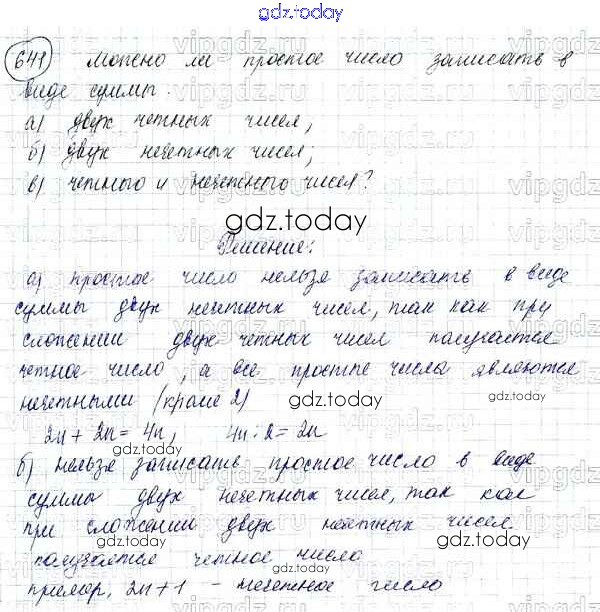 gdz.today
641 Можно ли простое число записать в
виде суммы.
а) двух четных чисел,
б) двух нечетных чисел;
в) четного и нечетного чисел?
gdz.today
Решение:
а) простое число нельзя записать в виде
суммы двух нечетных чисел, так как при
сложении двух четных чисел получается
четное число, а все простые числа являются
нечетными (кроме 2) gdz.today
2n + 2n = 4n, 4n : 2 = 2n
gdz.today
б) нельзя записать простое число в виде
суммы двух нечетных чисел, так как
при сложении двух нечетных чисел
gdz.today
получается четное число
gdz.today
пример, 2n + 1 - нечетное число